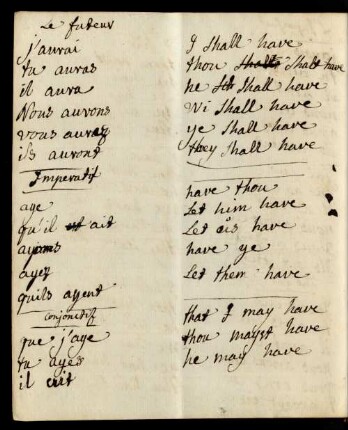 Le futeur
j'aurai I Shall have
tu auras thou Shalt have
il aura he Shall have
Nous aurons Wi Shall have
vous aurez ye Shall have
ils auront they Shall have
Imperatif
aye have thou
qu'il ait Let him have
ayons Let us have
ayez have ye
quils ayent Let them have
Conjonctif
que j'aye that I may have
tu ayes thou mayst have
il ait he may have